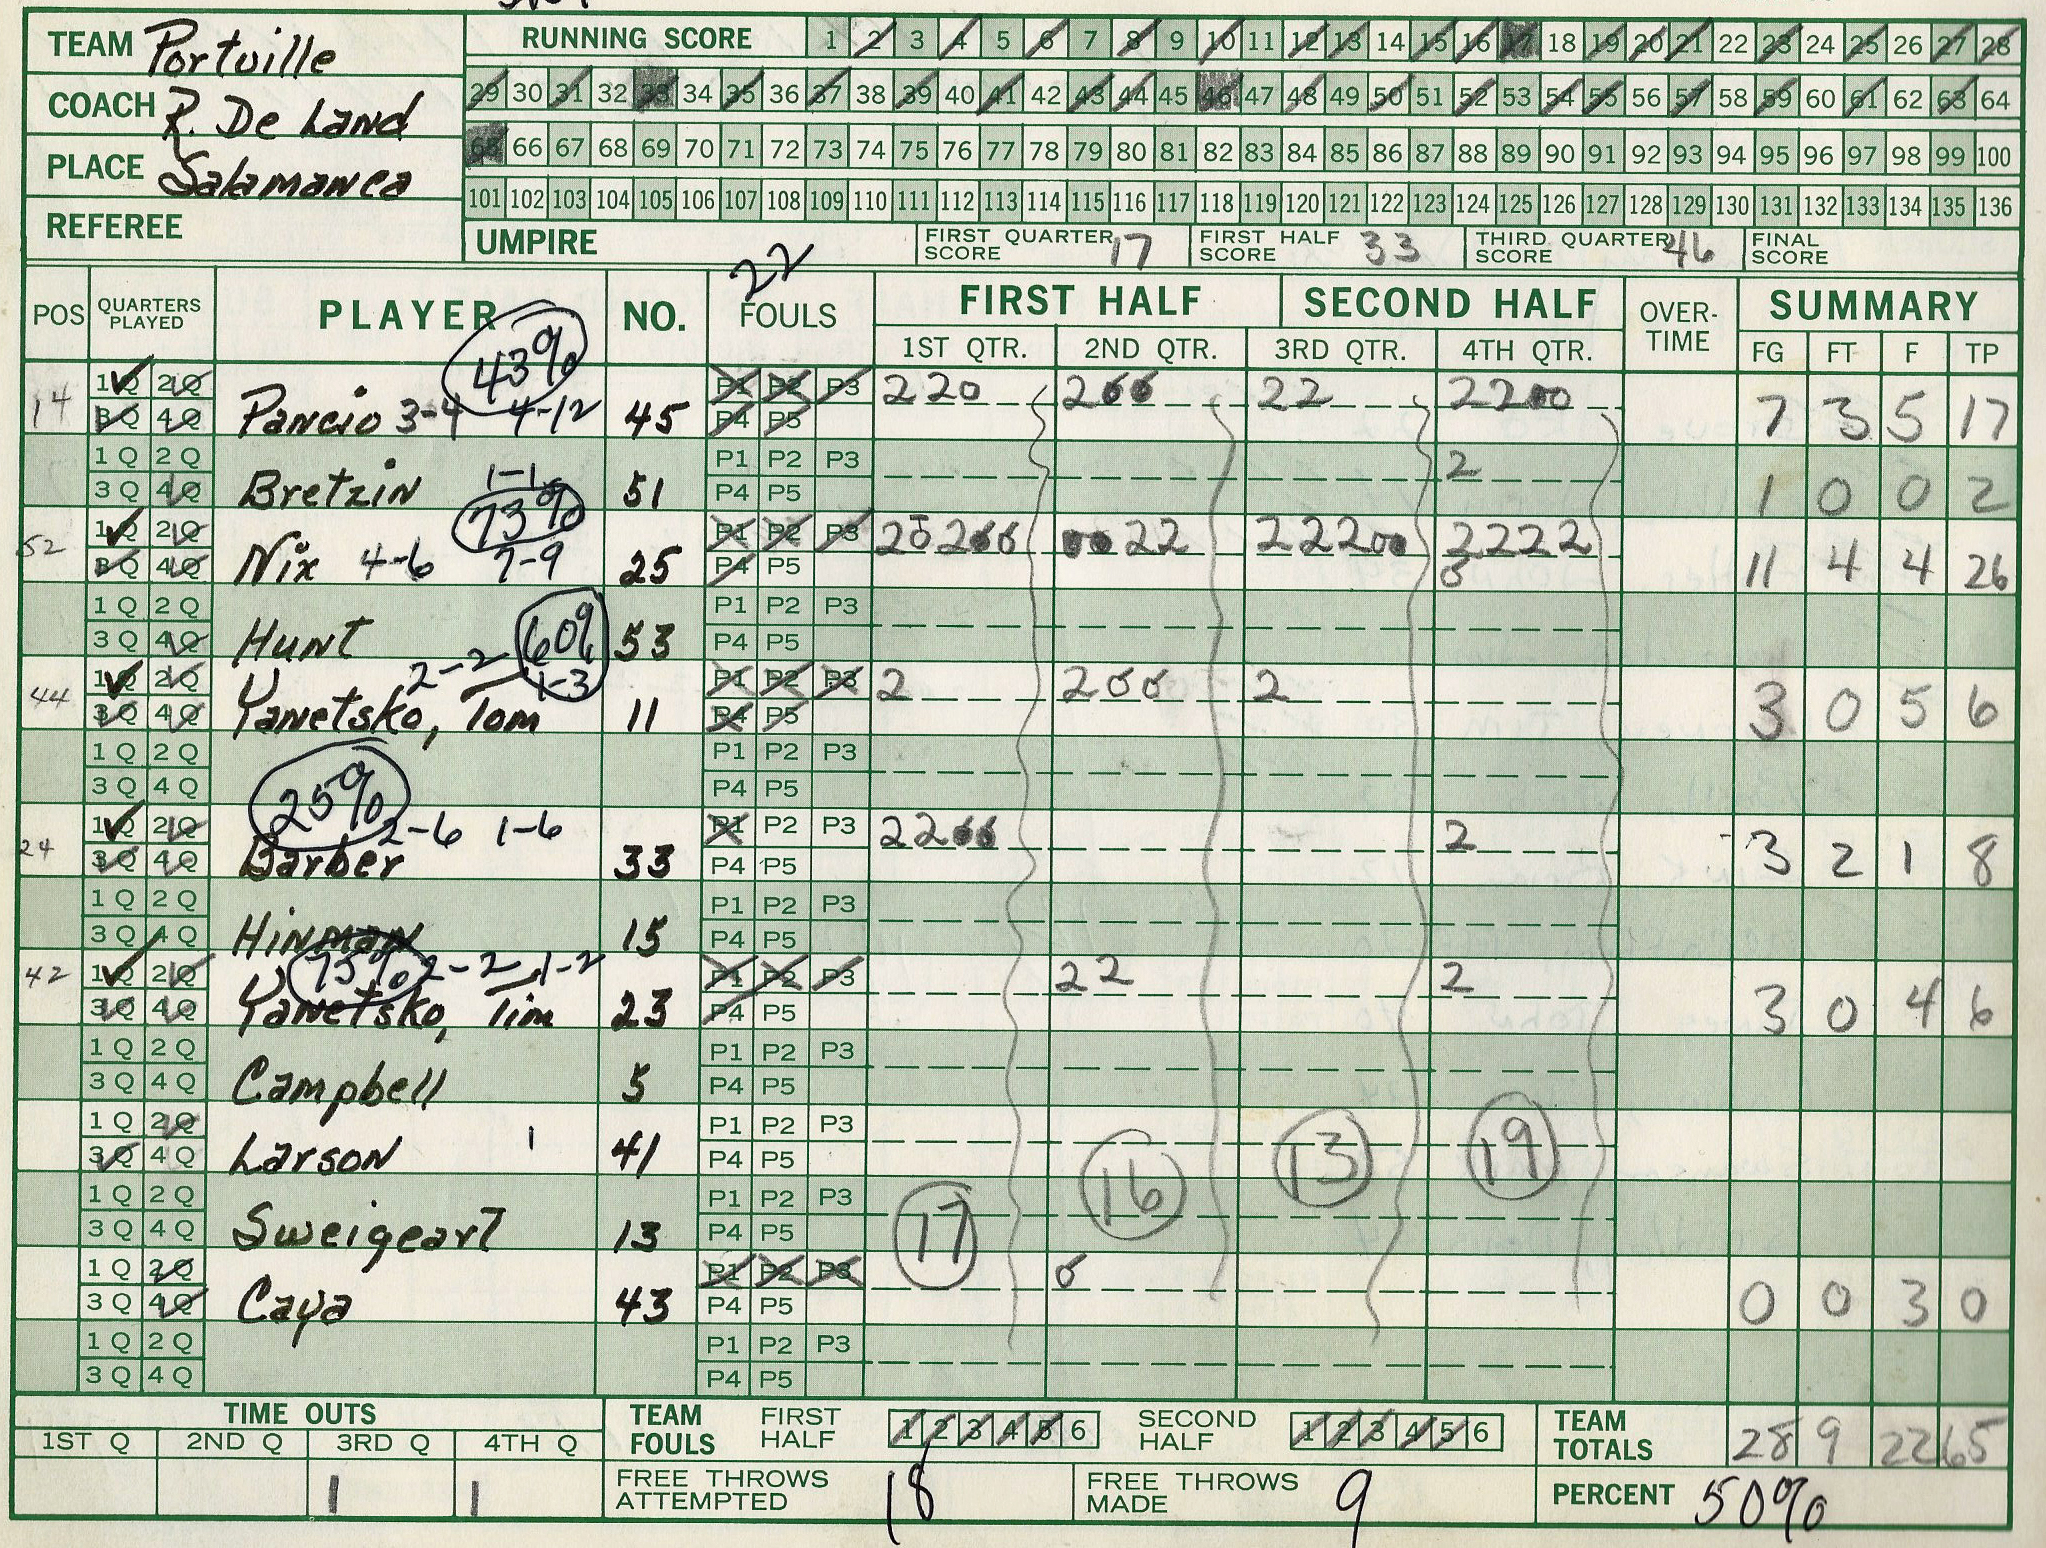 TEAM Portville
COACH R. De Land
PLACE Salamanca
REFEREE
RUNNING SCORE 1 2 3 4 5 6 7 8 9 10 11 12 13 14 15 16 17 18 19 20 21 22 23 24 25 26 27 28
29 30 31 32 33 34 35 36 37 38 39 40 41 42 43 44 45 46 47 48 49 50 51 52 53 54 55 56 57 58 59 60 61 62 63 64
65 66 67 68 69 70 71 72 73 74 75 76 77 78 79 80 81 82 83 84 85 86 87 88 89 90 91 92 93 94 95 96 97 98 99 100
101 102 103 104 105 106 107 108 109 110 111 112 113 114 115 116 117 118 119 120 121 122 123 124 125 126 127 128 129 130 131 132 133 134 135 136
UMPIRE FIRST QUARTER SCORE 17 FIRST HALF SCORE 33 THIRD QUARTER SCORE 46 FINAL SCORE
POS QUARTERS PLAYED PLAYER NO. 22 FOULS FIRST HALF SECOND HALF OVER-TIME SUMMARY
1ST QTR. 2ND QTR. 3RD QTR. 4TH QTR. FG FT F TP
43%
1Q 2Q P1 P2 P3 220 200 22 2200
14 3Q 4Q Pancio 3-4 4-12 45 P4 P5 7 3 5 17
1Q 2Q P1 P2 P3 2
3Q 4Q Bretzin 1-1 51 P4 P5 1 0 0 2
73%
1Q 2Q P1 P2 P3 20200 0022 22200 2222
52 3Q 4Q Nix 4-6 7-9 25 P4 P5 0 11 4 4 26
1Q 2Q P1 P2 P3
3Q 4Q Hunt 60% 53 P4 P5
1Q 2Q 2-2 1-3 P1 P2 P3 2 200 2
44 3Q 4Q Yanetsko, Tom 11 P4 P5 3 0 5 6
1Q 2Q P1 P2 P3
3Q 4Q 25% P4 P5
1Q 2Q 2-6 1-6 P1 P2 P3 2200 2
24 3Q 4Q Barber 33 P4 P5 3 2 1 8
1Q 2Q P1 P2 P3
3Q 4Q Hinman 15 P4 P5
42 1Q 2Q 75% 2-2 1-2 P1 P2 P3 22 2
3Q 4Q Yanetsko, Tim 23 P4 P5 3 0 4 6
1Q 2Q P1 P2 P3
3Q 4Q Campbell 5 P4 P5
1Q 2Q P1 P2 P3
3Q 4Q Larson 41 P4 P5 16 13 19
1Q 2Q P1 P2 P3
3Q 4Q Sweigeart 13 P4 P5 17
1Q 2Q P1 P2 P3 0
3Q 4Q Caya 43 P4 P5 0 0 3 0
1Q 2Q P1 P2 P3
3Q 4Q P4 P5
TIME OUTS
1ST Q 2ND Q 3RD Q 4TH Q
1 1
TEAM FOULS FIRST HALF 1 2 3 4 5 6 SECOND HALF 1 2 3 4 5 6
TEAM TOTALS 28 9 22 65
FREE THROWS ATTEMPTED 18 FREE THROWS MADE 9 PERCENT 50%